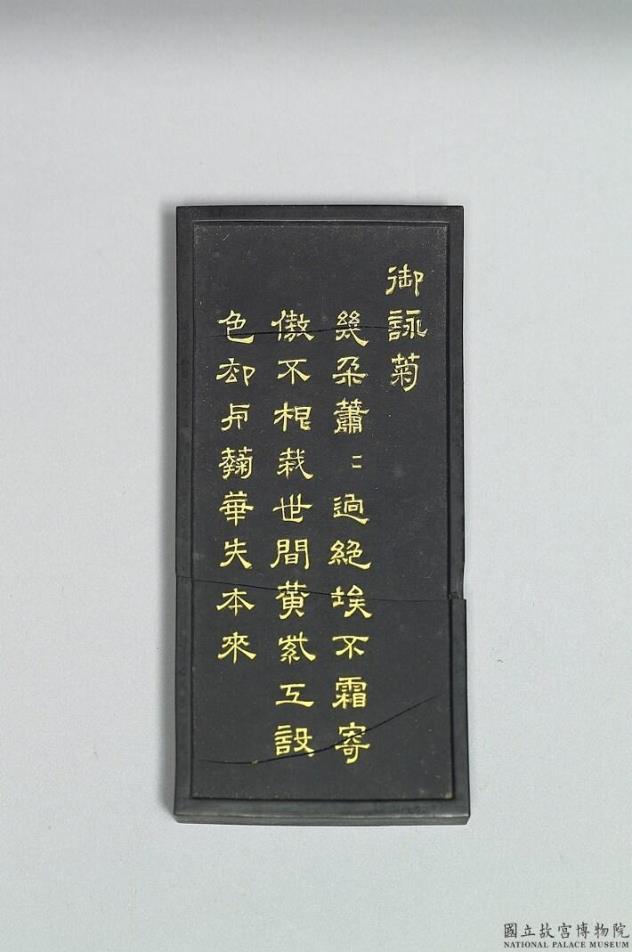 御詠菊
幾朵蕭〻逈絶埃不霜寄
傲不根栽世間黄紫互設
色却与蘜華失本來
國立故宮博物院
NATIONAL PALACE MUSEUM